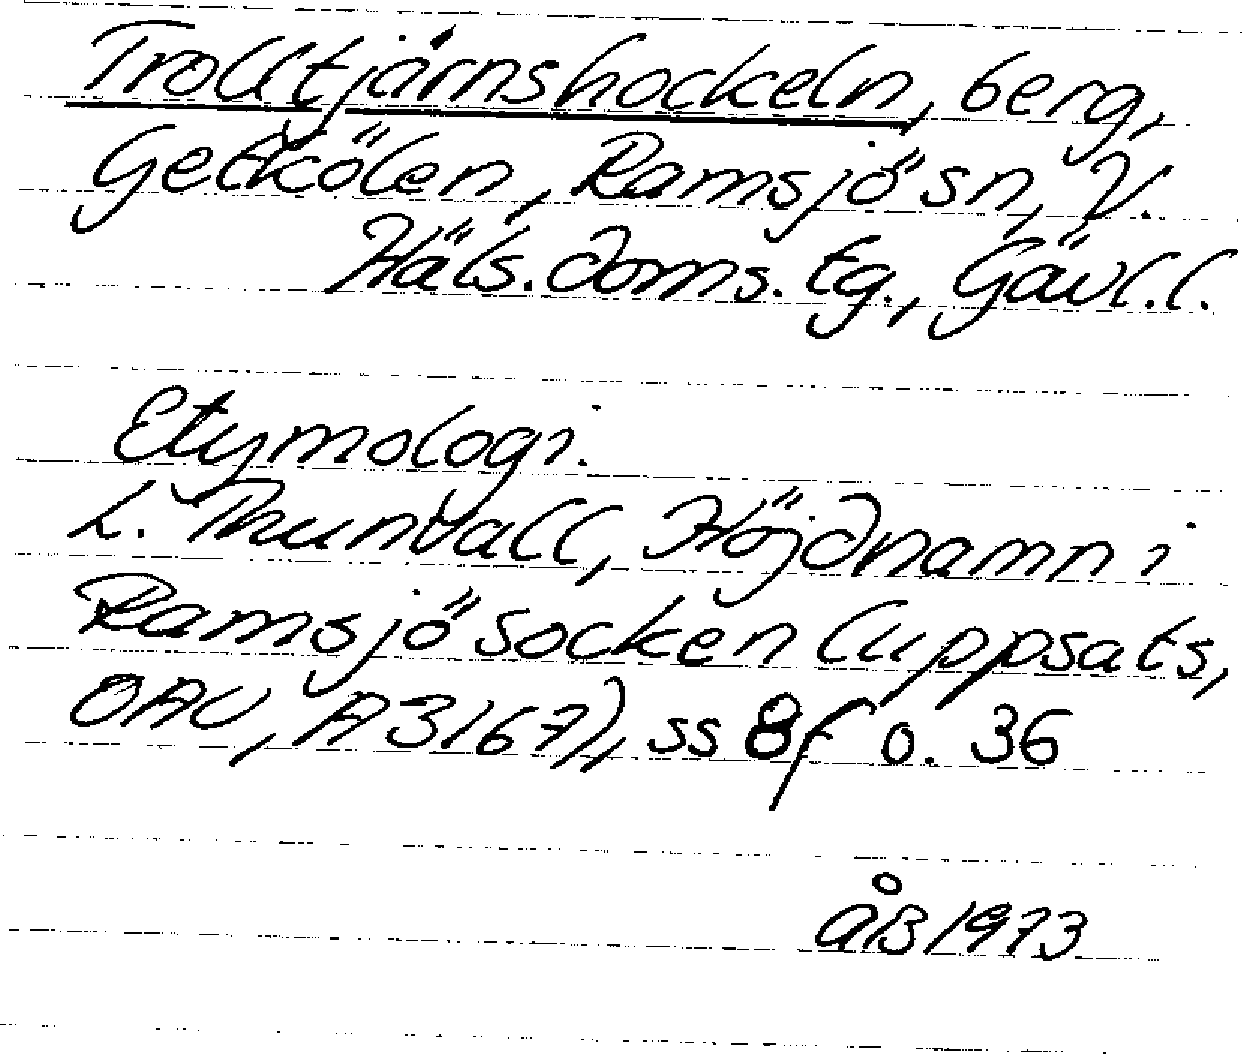 Trolltjärnshockeln, berg,
Getkölen, Ramsjö sn, V.
Häls. doms. tg., Gävl.l.
Etymologi.
L. Thunvall, Höjdnamn i
Ramsjö socken (uppsats,
OAU, A 3167), ss 8f o. 36
åB 1973